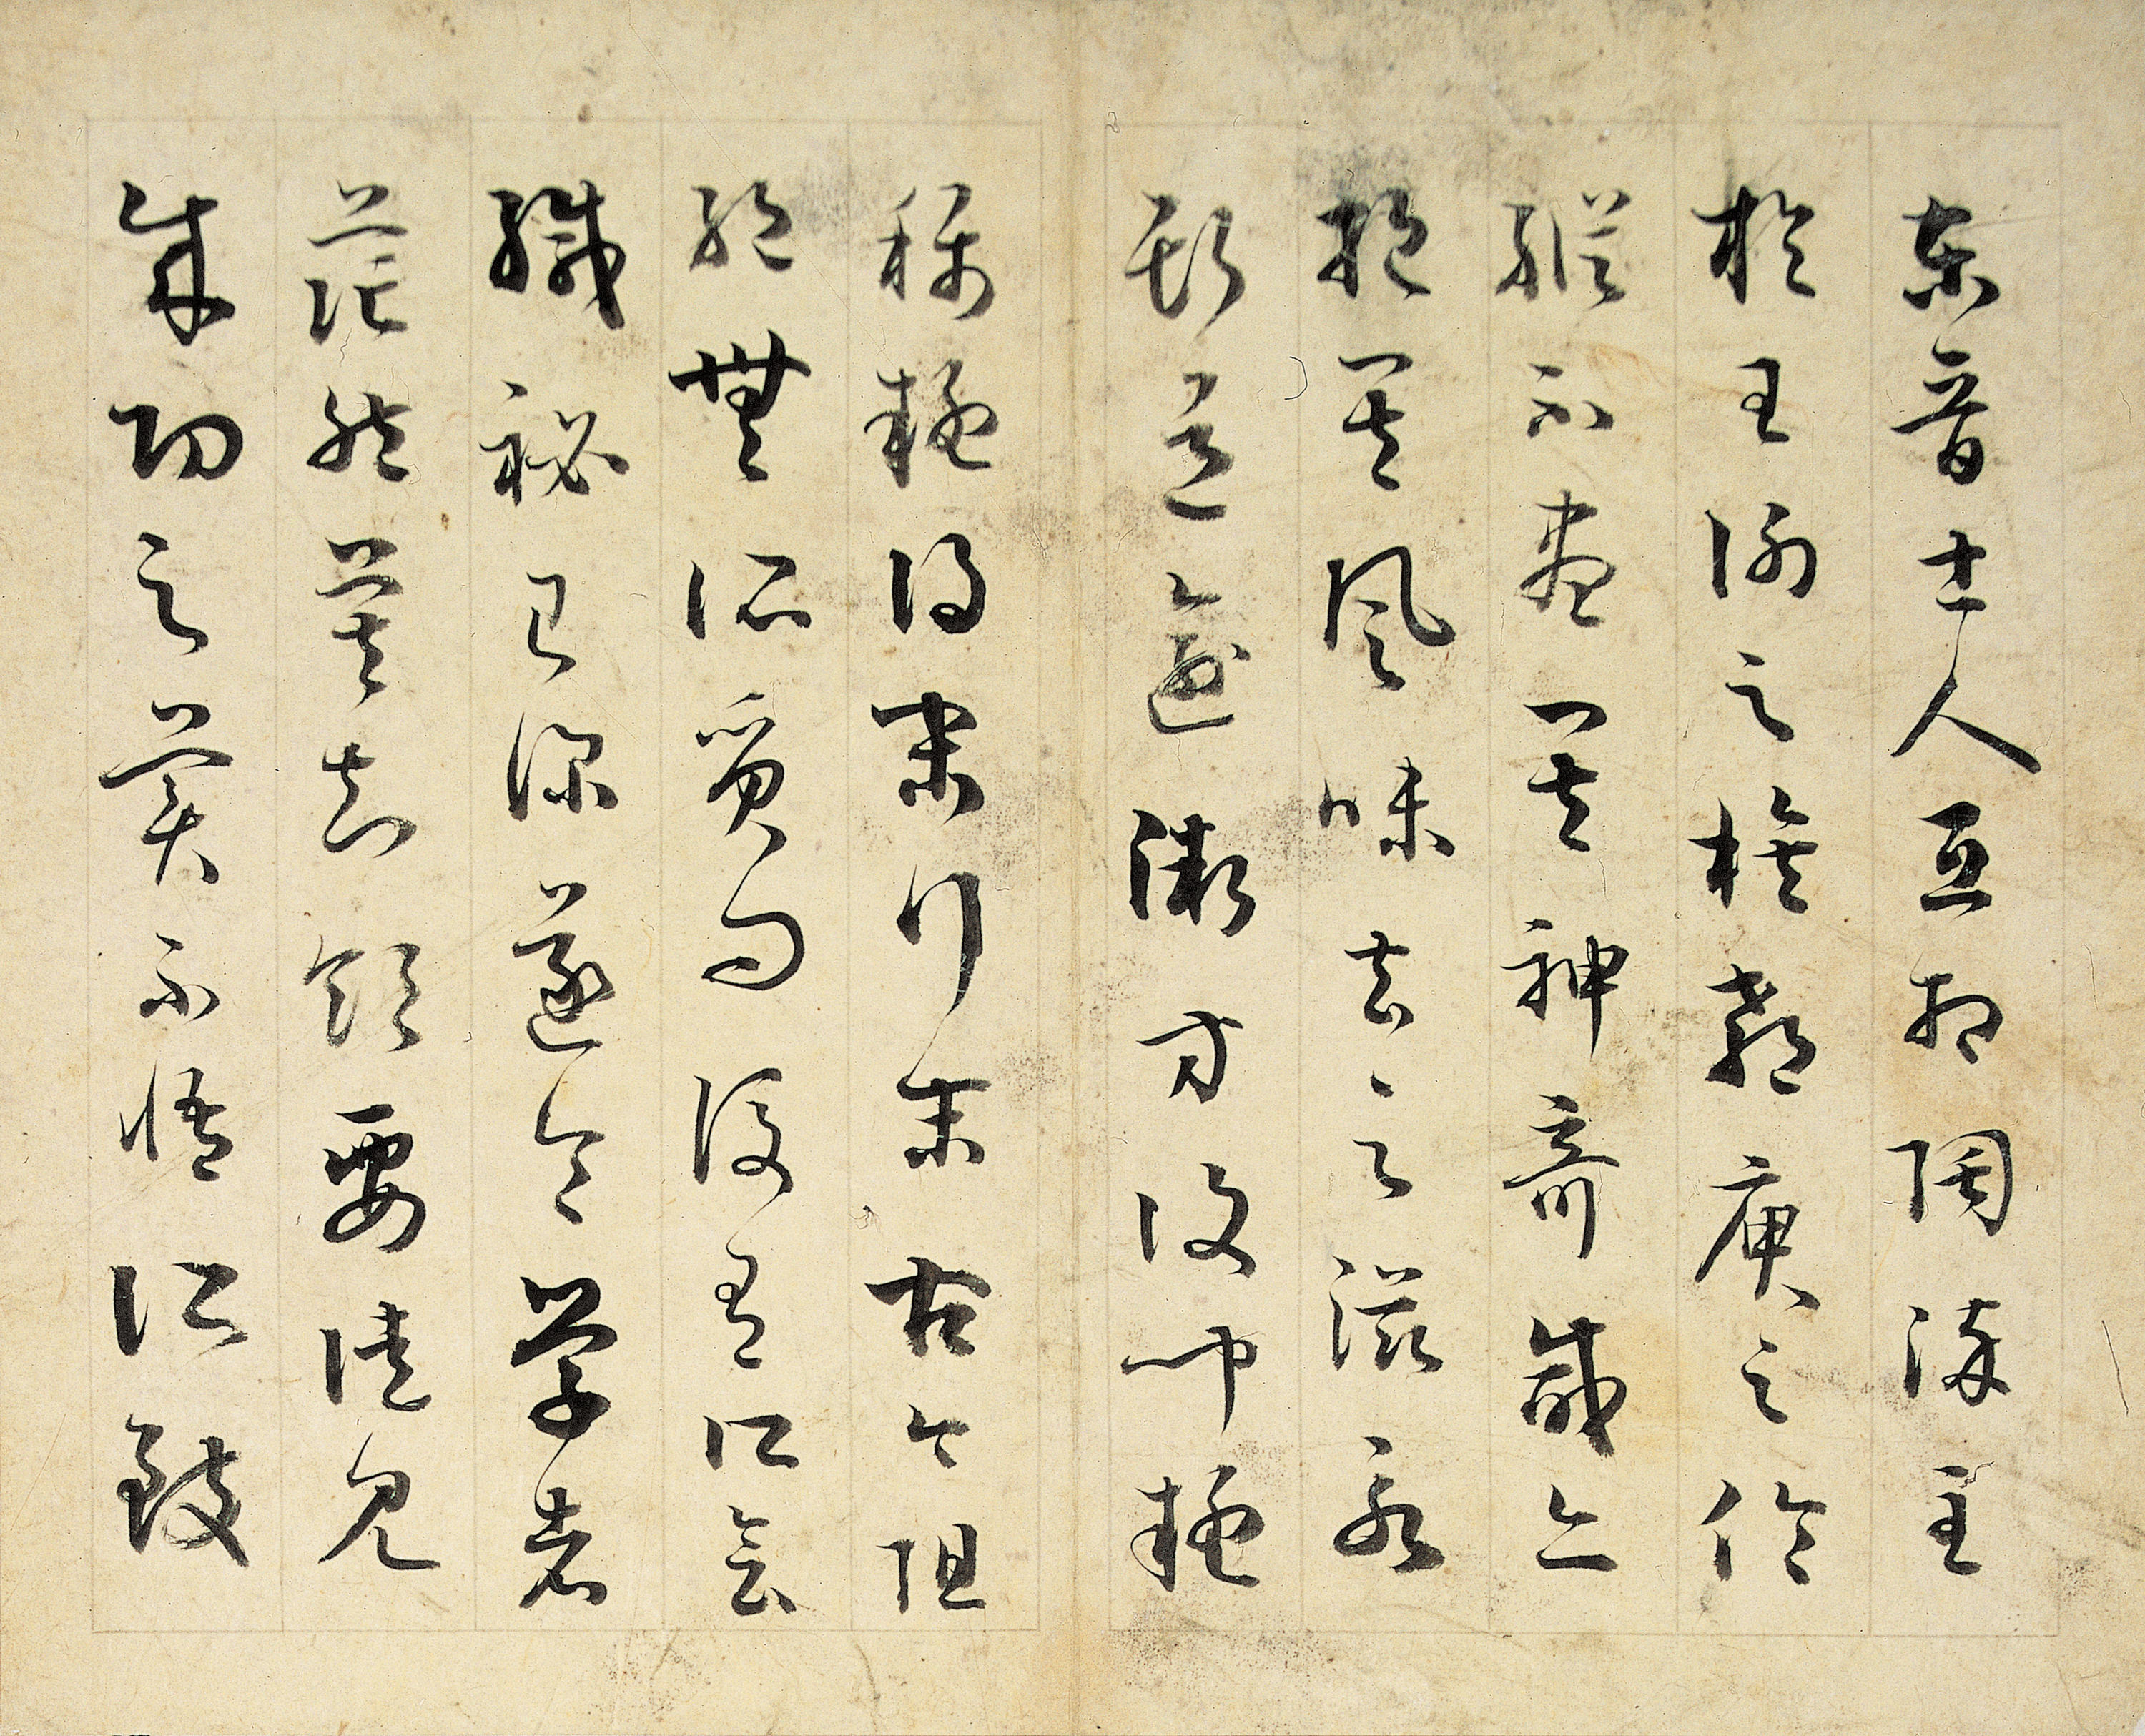 東晉士人互相陶淬至
於王謝之族郗庾之倫
縱不盡其神奇咸亦
挹其風味去之滋永
斯道愈微方復聞疑
稱疑得末行末古今阻
絕無所質問設有所會
緘祕已深遂令學者
茫然莫知領要徒見
成功之美不悟所致